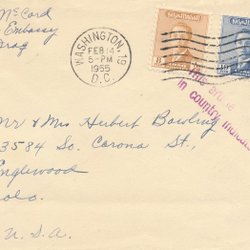 McCord
Embassy
Iraq
WASHINGTON, 19
FEB 14
5-PM
1955
D.C.
in country indicated
Mr & Mrs Herbert Bowling
3584 So. Corona St.,
Englewood
Colo.
U.S.A.